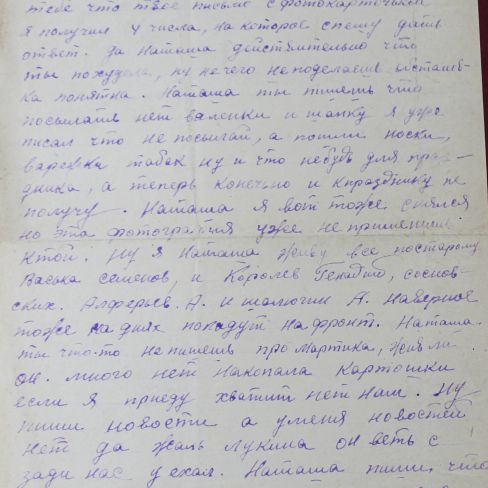 тебе что твое письмо с фотокарточкой
я получил 4 числа, на которое спешу дать
ответ. За Наташа действительно что
ты похудела, ну нечего неподелаешь обстанов-
ка понятна. Наташа ты пишешь что
посылать нет валенки и шапку я уже
писал что не посылай, а пошли носки,
варежка табак ну и что нибудь для праз-
дника, а теперь конечно и кпразднику не
получу. Наташа я вот тоже снялся
но эта фотография уже не применим
ктой. Ну я Наташа живу все постарому
Васька семенов, и Королев Генадий, соснов-
ских. Алферьев. А. и шалюгин А. наверное
тоже на днях попадут на фронт. Наташа.
ты что-то непишешь про Мартика, жив ли
он. много нет накопала картошки
если я приеду хватит нет нам. Ну
пиши новости а уменя новостей
нет да жаль Лукина он веть с
зади нас уехал. Наташа пиши, что